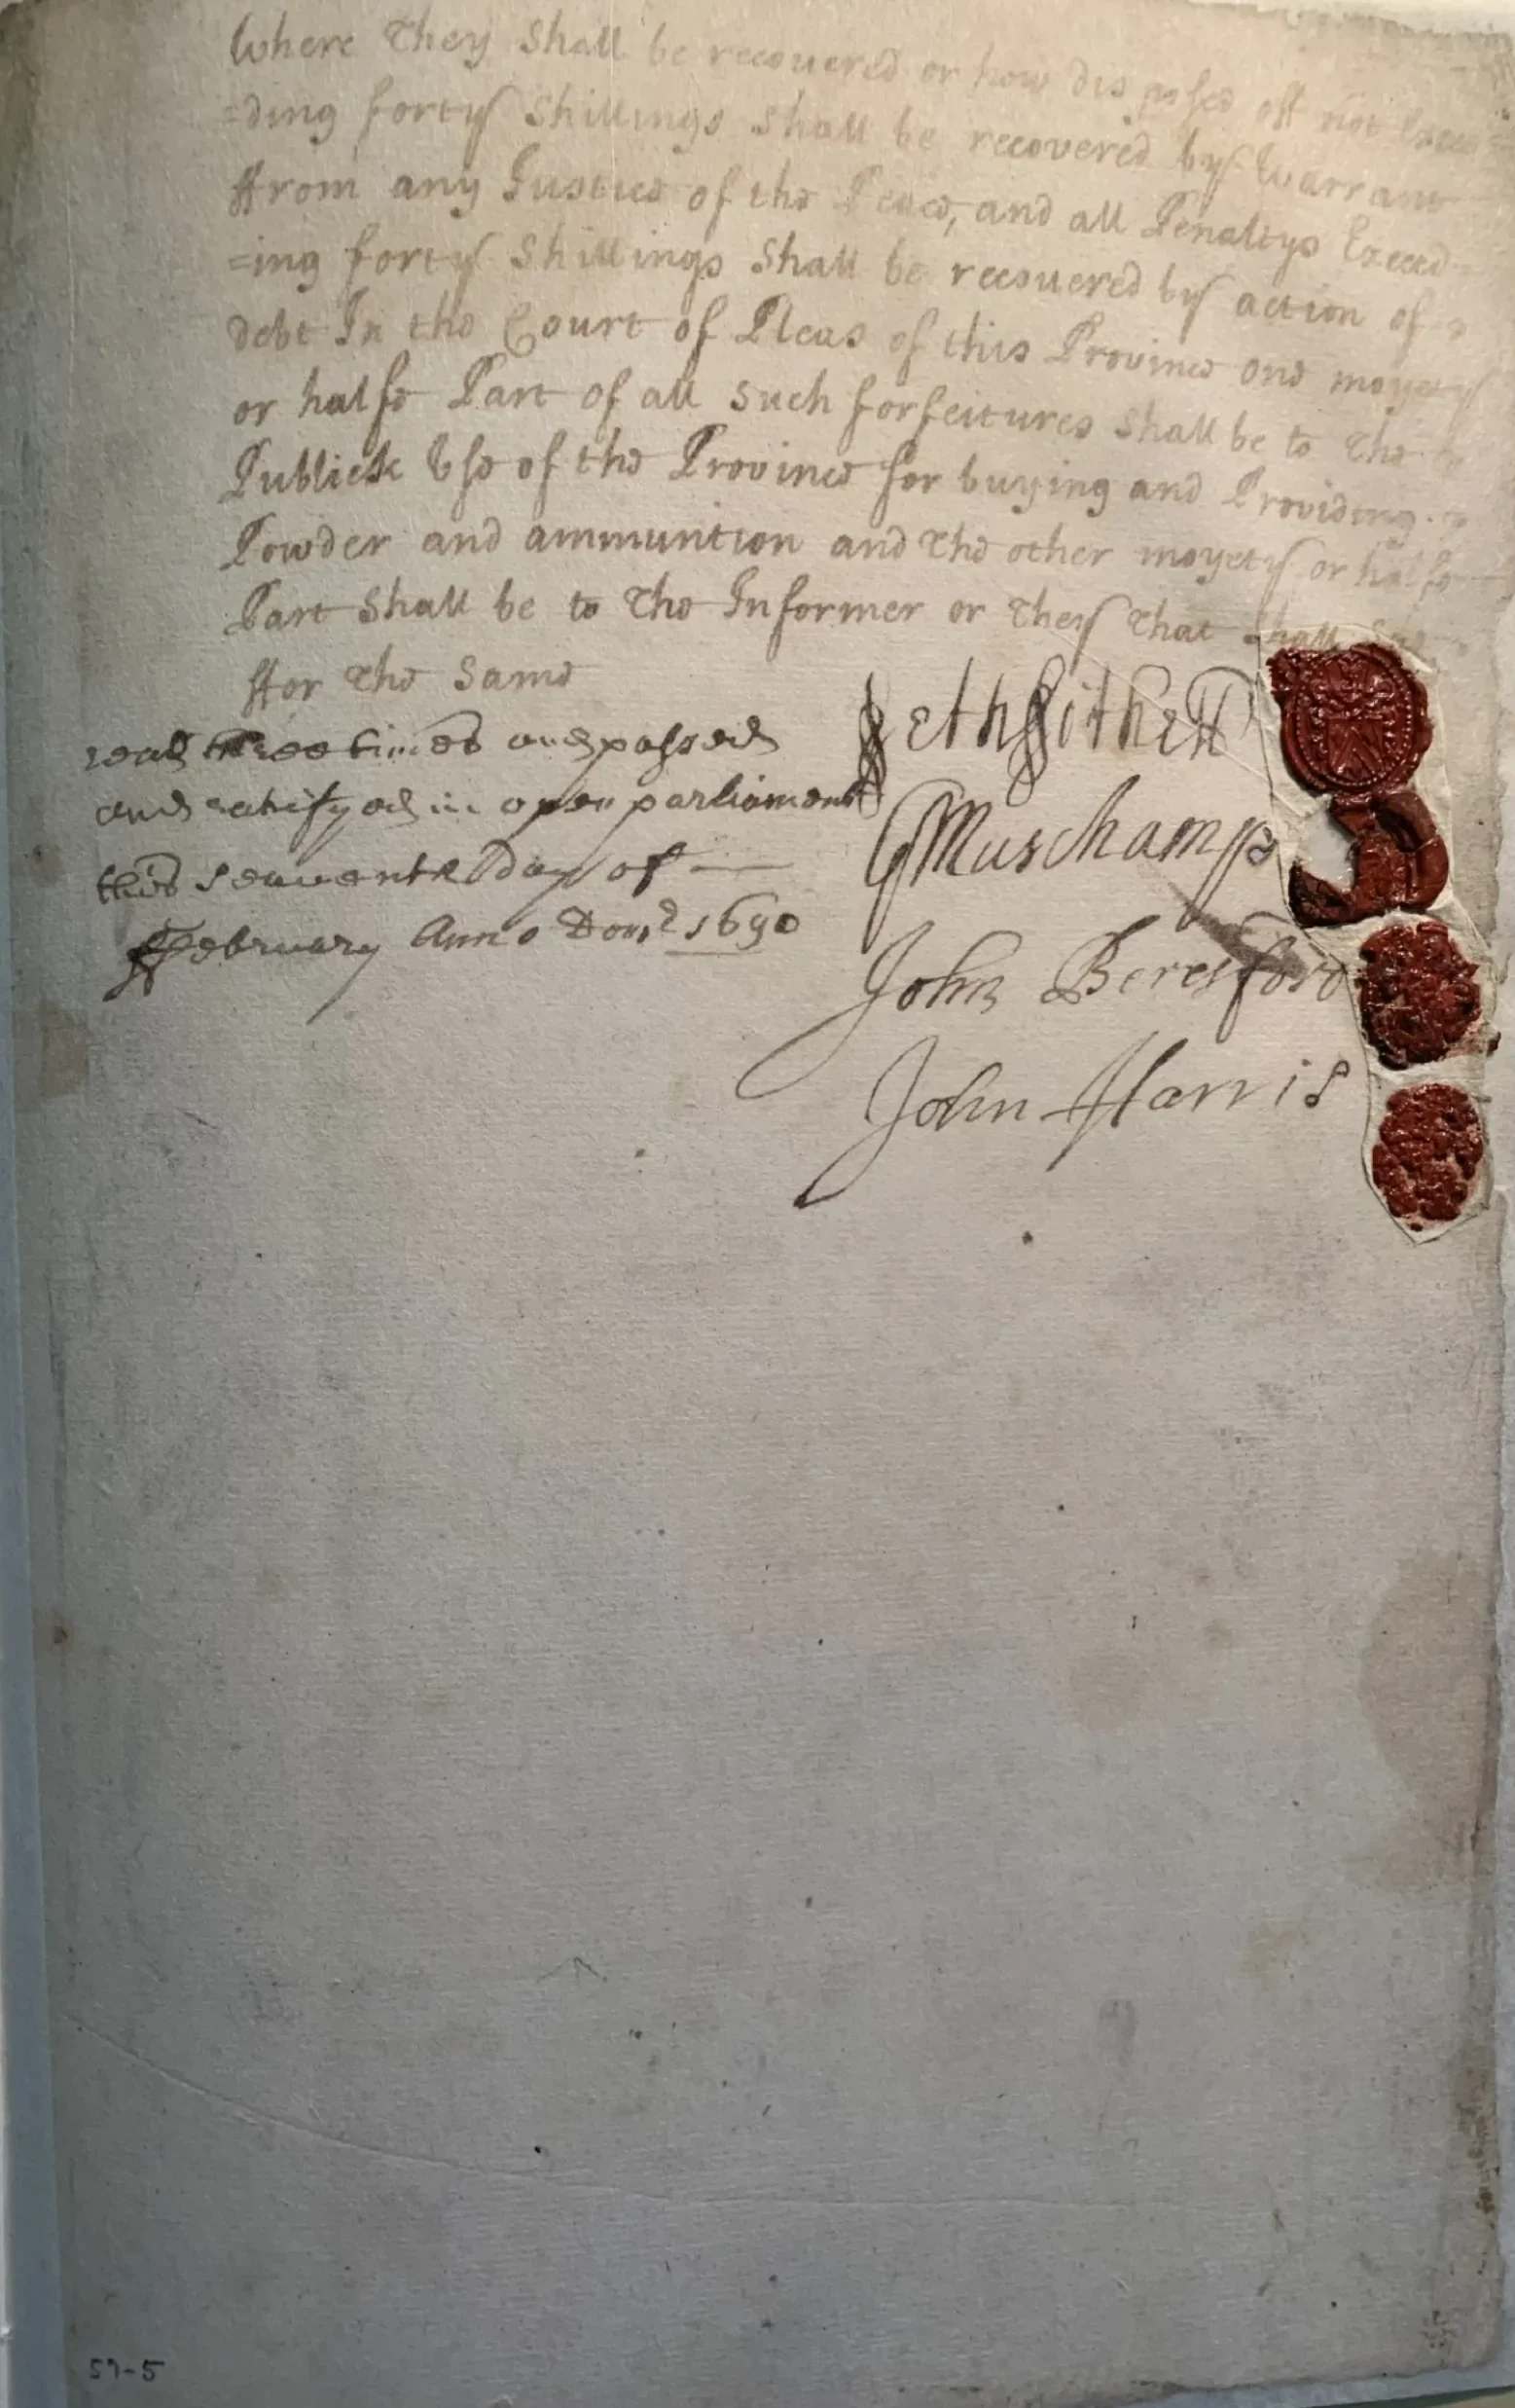 Where they shall be recouered or how disposed off not Excee=
=ding forty shillings shall be recovered by Warrant
ffrom any Justice of the Peace, and all Penaltys Exceed=
=ing forty Shillings Shall be recouered by action of
debt In the Court of Pleas of this Province one moyety
or halfe Part of all such forfeitures shall be to the
Publick Use of the Province for buying and Providing
Powder and ammunition and the other moyety or halfe
Part shall be to the Informer or they that shall sue
ffor the same
read three times and passed
and ratifyed in open parliament
this seauenth Day of
ffebruary Anno Dom 1690
Seth Sothell
G Muschamp
John Beresford
John Harris
57-5